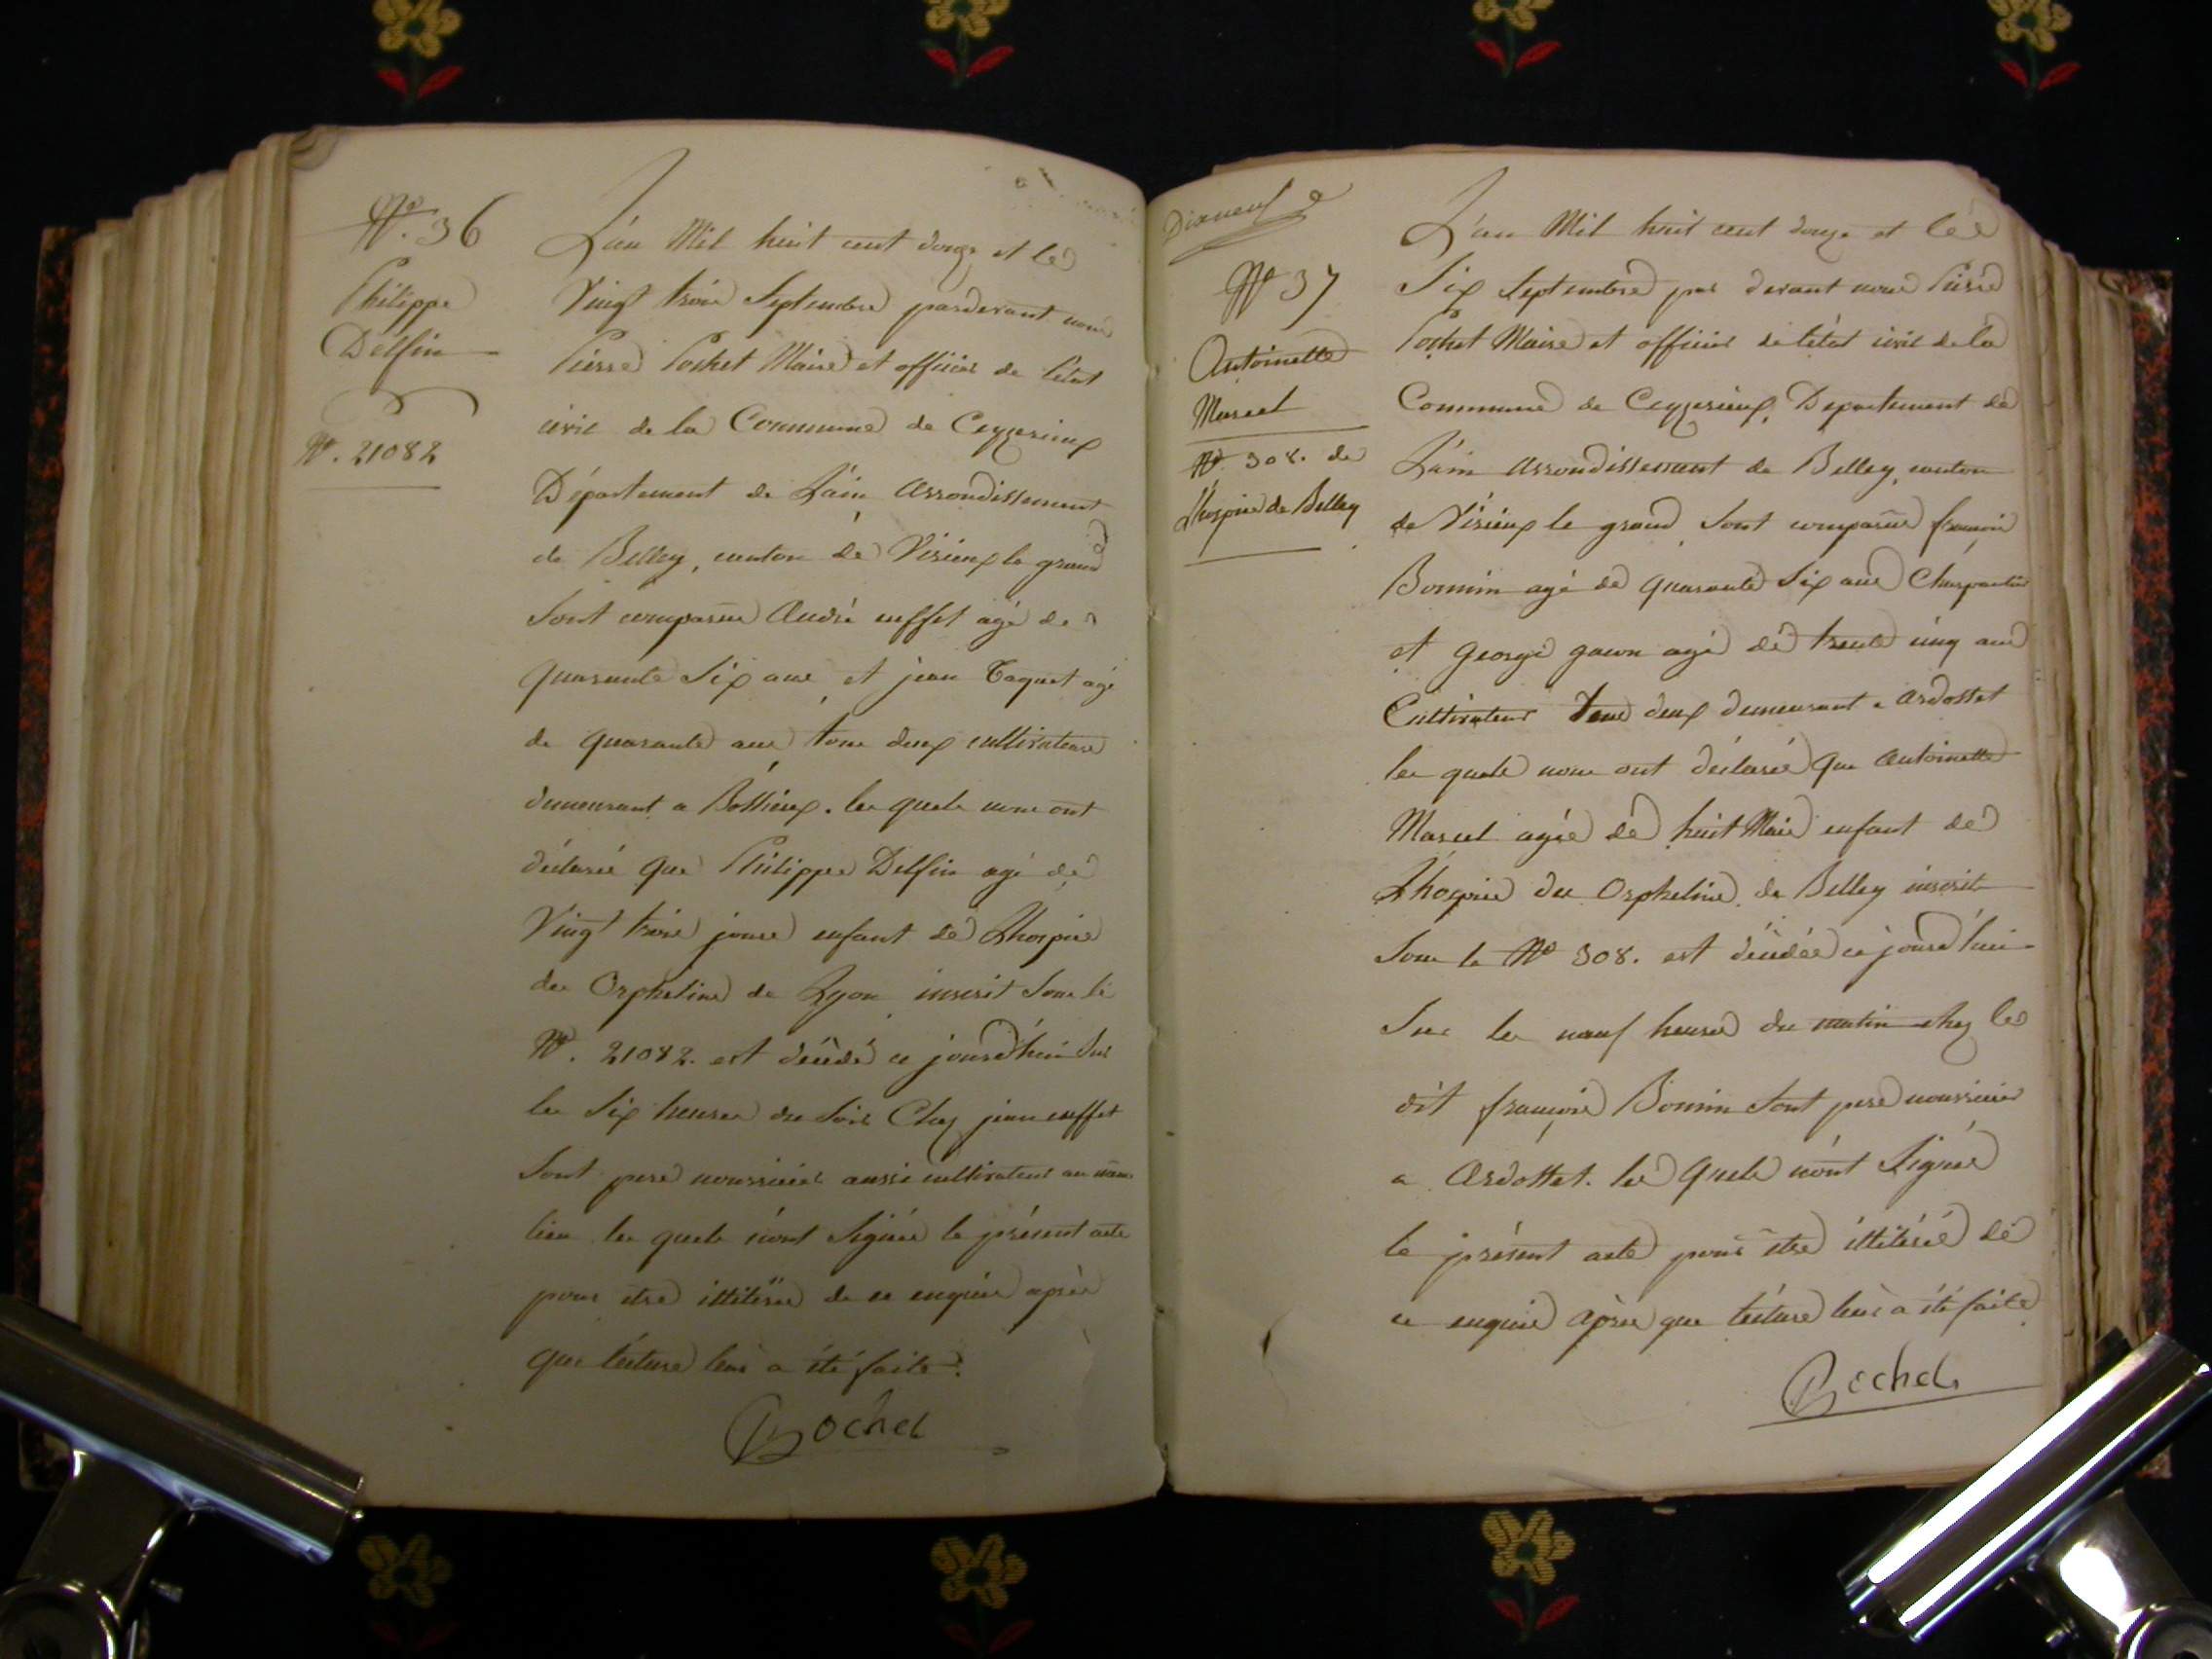 Nº. 36
Philippe
Delfin
Nº. 21082
L'an Mil huit cent douze et le
Vingt trois Septembre pardevant nous
Pierre Pochet Maire et officier de l'état
civil de la Commune de Ceyzerieux
Département de L'ain arrondissement
de Belley, canton de Virieux le grand
Sont comparus André cuffet agé de
quarante Six ans et jean Taquet agé
de quarante ans, tous deux cultivateurs
demeurant a Bossieux. les quels nous ont
déclaré que Philippe Delfin agé de
Vingt trois jours enfant de Lhospice
des Orphelins de Lyon inscrit Sous le
Nº. 21082. est décédé ce jourd'hui Sur
les Six heures du Soir Chez jean cuffet
Sont pere nourricier aussi cultivateur au même
lieu les quels n'ont Signés le présent acte
pour être illitérés de ce enquis après
que lecture leur a été faite.
Pochet
Nº 37
Antoinette
Marcel
Nº. 308. de
L'hospice de Belley
L'an Mil huit cent douze et le
Six Septembre par devant nous Pierre
Pochet Maire et officier de l'état civil de la
Commune de Ceyzerieux, Departement de
L'ain arrondissement de Belley, canton
de Virieux le grand, Sont comparus françois
Bonnin agé de quarante Six ans Charpentier
et george gacon agé de trente cinq ans
Cultivateur tous deux demeurant a ardosset
les quels nous ont déclaré que antoinette
Marcel agée de huit Mois enfant de
L'hospice des Orphelins de Belley inscrit
Sous le Nº 308. est décédée ce jourd'hui
Sur les neuf heures du matin chez le
dit françois Bonnin Sont pere nourricier
a ardosset. les quels n'ont Signés
le présent acte pour être illitérés de
ce enquis après que lecture leur a été faite
Pochet